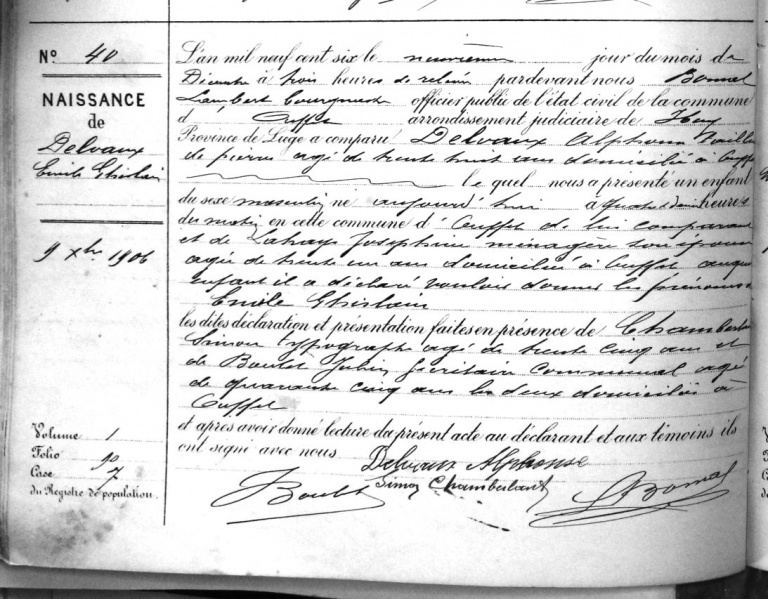 Nº 40
NAISSANCE
de
Delvaux
Emile Ghislain
9 Xbre 1906
Volume 1
Folio
Case 7
du Registre de population.
L'an mil neuf cent six le neuvième jour du mois de
Décembre à trois heures de relevée pardevant nous Bomal
Lambert Bourgmestre officier public de l'état civil de la commune
d' Ouffet arrondissement judiciaire de Huy
Province de Liège a comparu Delvaux Alphonse tailleur
de pierres agé de trente huit ans domicilié à Ouffet
lequel nous a présenté un enfant
du sexe masculin né aujourd'hui à quatre et demie heures
du matin en cette commune d' Ouffet de lui comparant
et de Lahaye Joséphine ménagère son épouse
agée de trente un ans domiciliée à Ouffet auquel
enfant il a déclaré vouloir donner les prénoms d
Emile Ghislain
les dites déclaration et présentation faites en présence de Chamberlant
Simon typographe agé de trente cinq ans et
de Boulet Julien Secrétaire Communal agé
de quarante cinq ans les deux domiciliés à
Ouffet
et après avoir donné lecture du présent acte au déclarant et aux témoins ils
ont signé avec nous
Delvaux Alphonse
JBoulet Simon Chamberlant LBomal